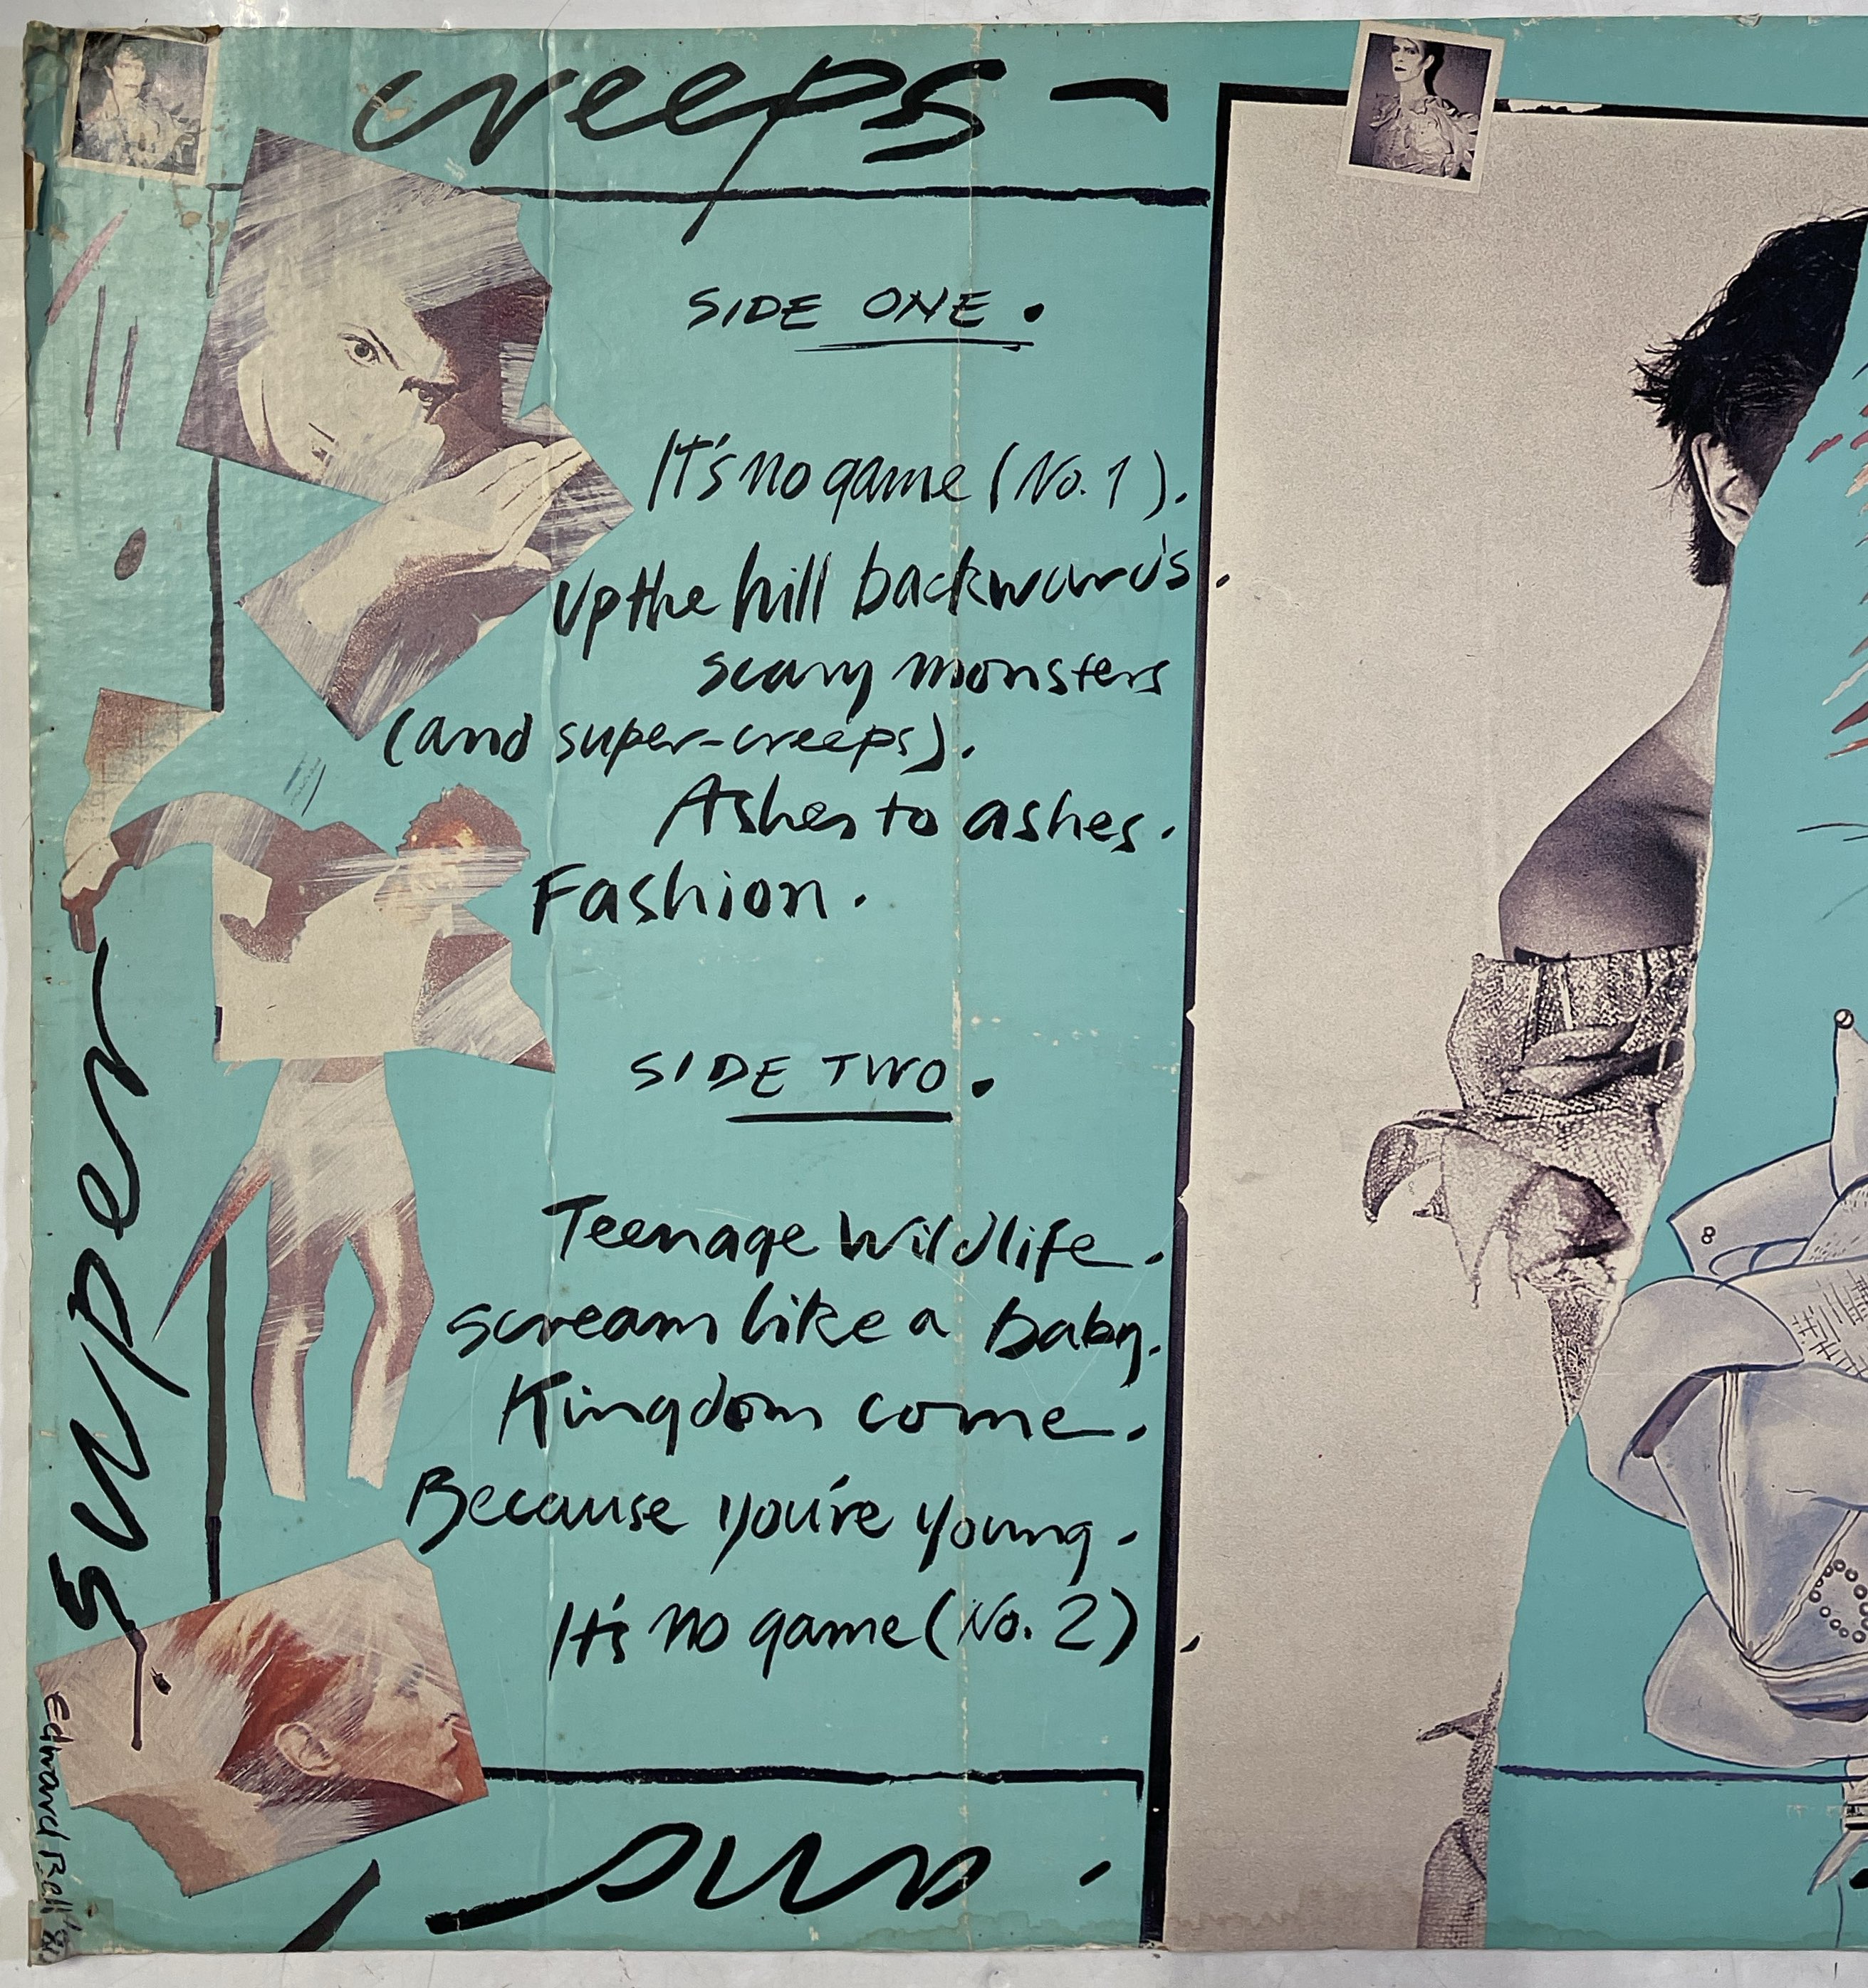 creeps –
SIDE ONE.
It's no game (No. 1).
Up the hill backwards.
scary monsters
(and super-creeps).
Ashes to ashes.
Fashion.
SIDE TWO.
Teenage wildlife.
scream like a baby.
Kingdom come.
Because you're young.
It's no game (No. 2).
super
Edward Bell '80
and